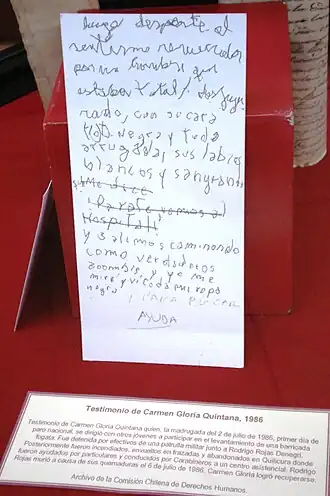 luego desperte al
sentirme removida
por un hombre que
estaba total/ desfigu
rado, con su cara
negra y toda
arrugada, sus labios
blancos y sangrando
me dice
Párate vamos al
Hospital
y salimos caminando
como verdaderos
zoombis, y yo me
miré y vi toda mi ropa
negra y PARA BUSCAR
AYUDA
Testimonio de Carmen Gloria Quintana, 1986
Testimonio de Carmen Gloria Quintana quien, la madrugada del 2 de julio de 1986, primer día de
paro nacional, se dirigió con otros jóvenes a participar en el levantamiento de una barricada
fogata. Fue detenida por efectivos de una patrulla militar junto a Rodrigo Rojas Denegri.
Posteriormente fueron incendiados, envueltos en frazadas y abandonados en Quilicura donde
fueron ayudados por particulares y conducidos por Carabineros a un centro asistencial. Rodrigo
Rojas murió a causa de sus quemaduras el 6 de julio de 1986, Carmen Gloria logró recuperarse.
Archivo de la Comisión Chilena de Derechos Humanos.